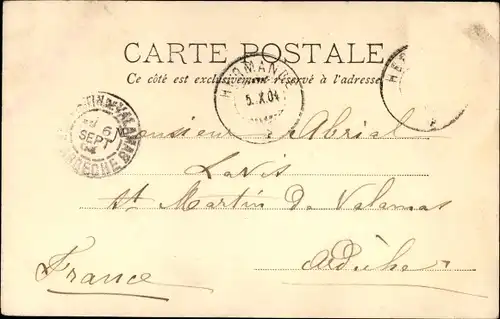 CARTE POSTALE
Ce côté est exclusivement réservé à l'adresse
HERMANCE
5.X.04
HER
ST MARTIN DE VALAMAS
6
SEPT
04
ARDECHE
Monsieur Abrial
St. Martin de Valamas
Ardèche
France